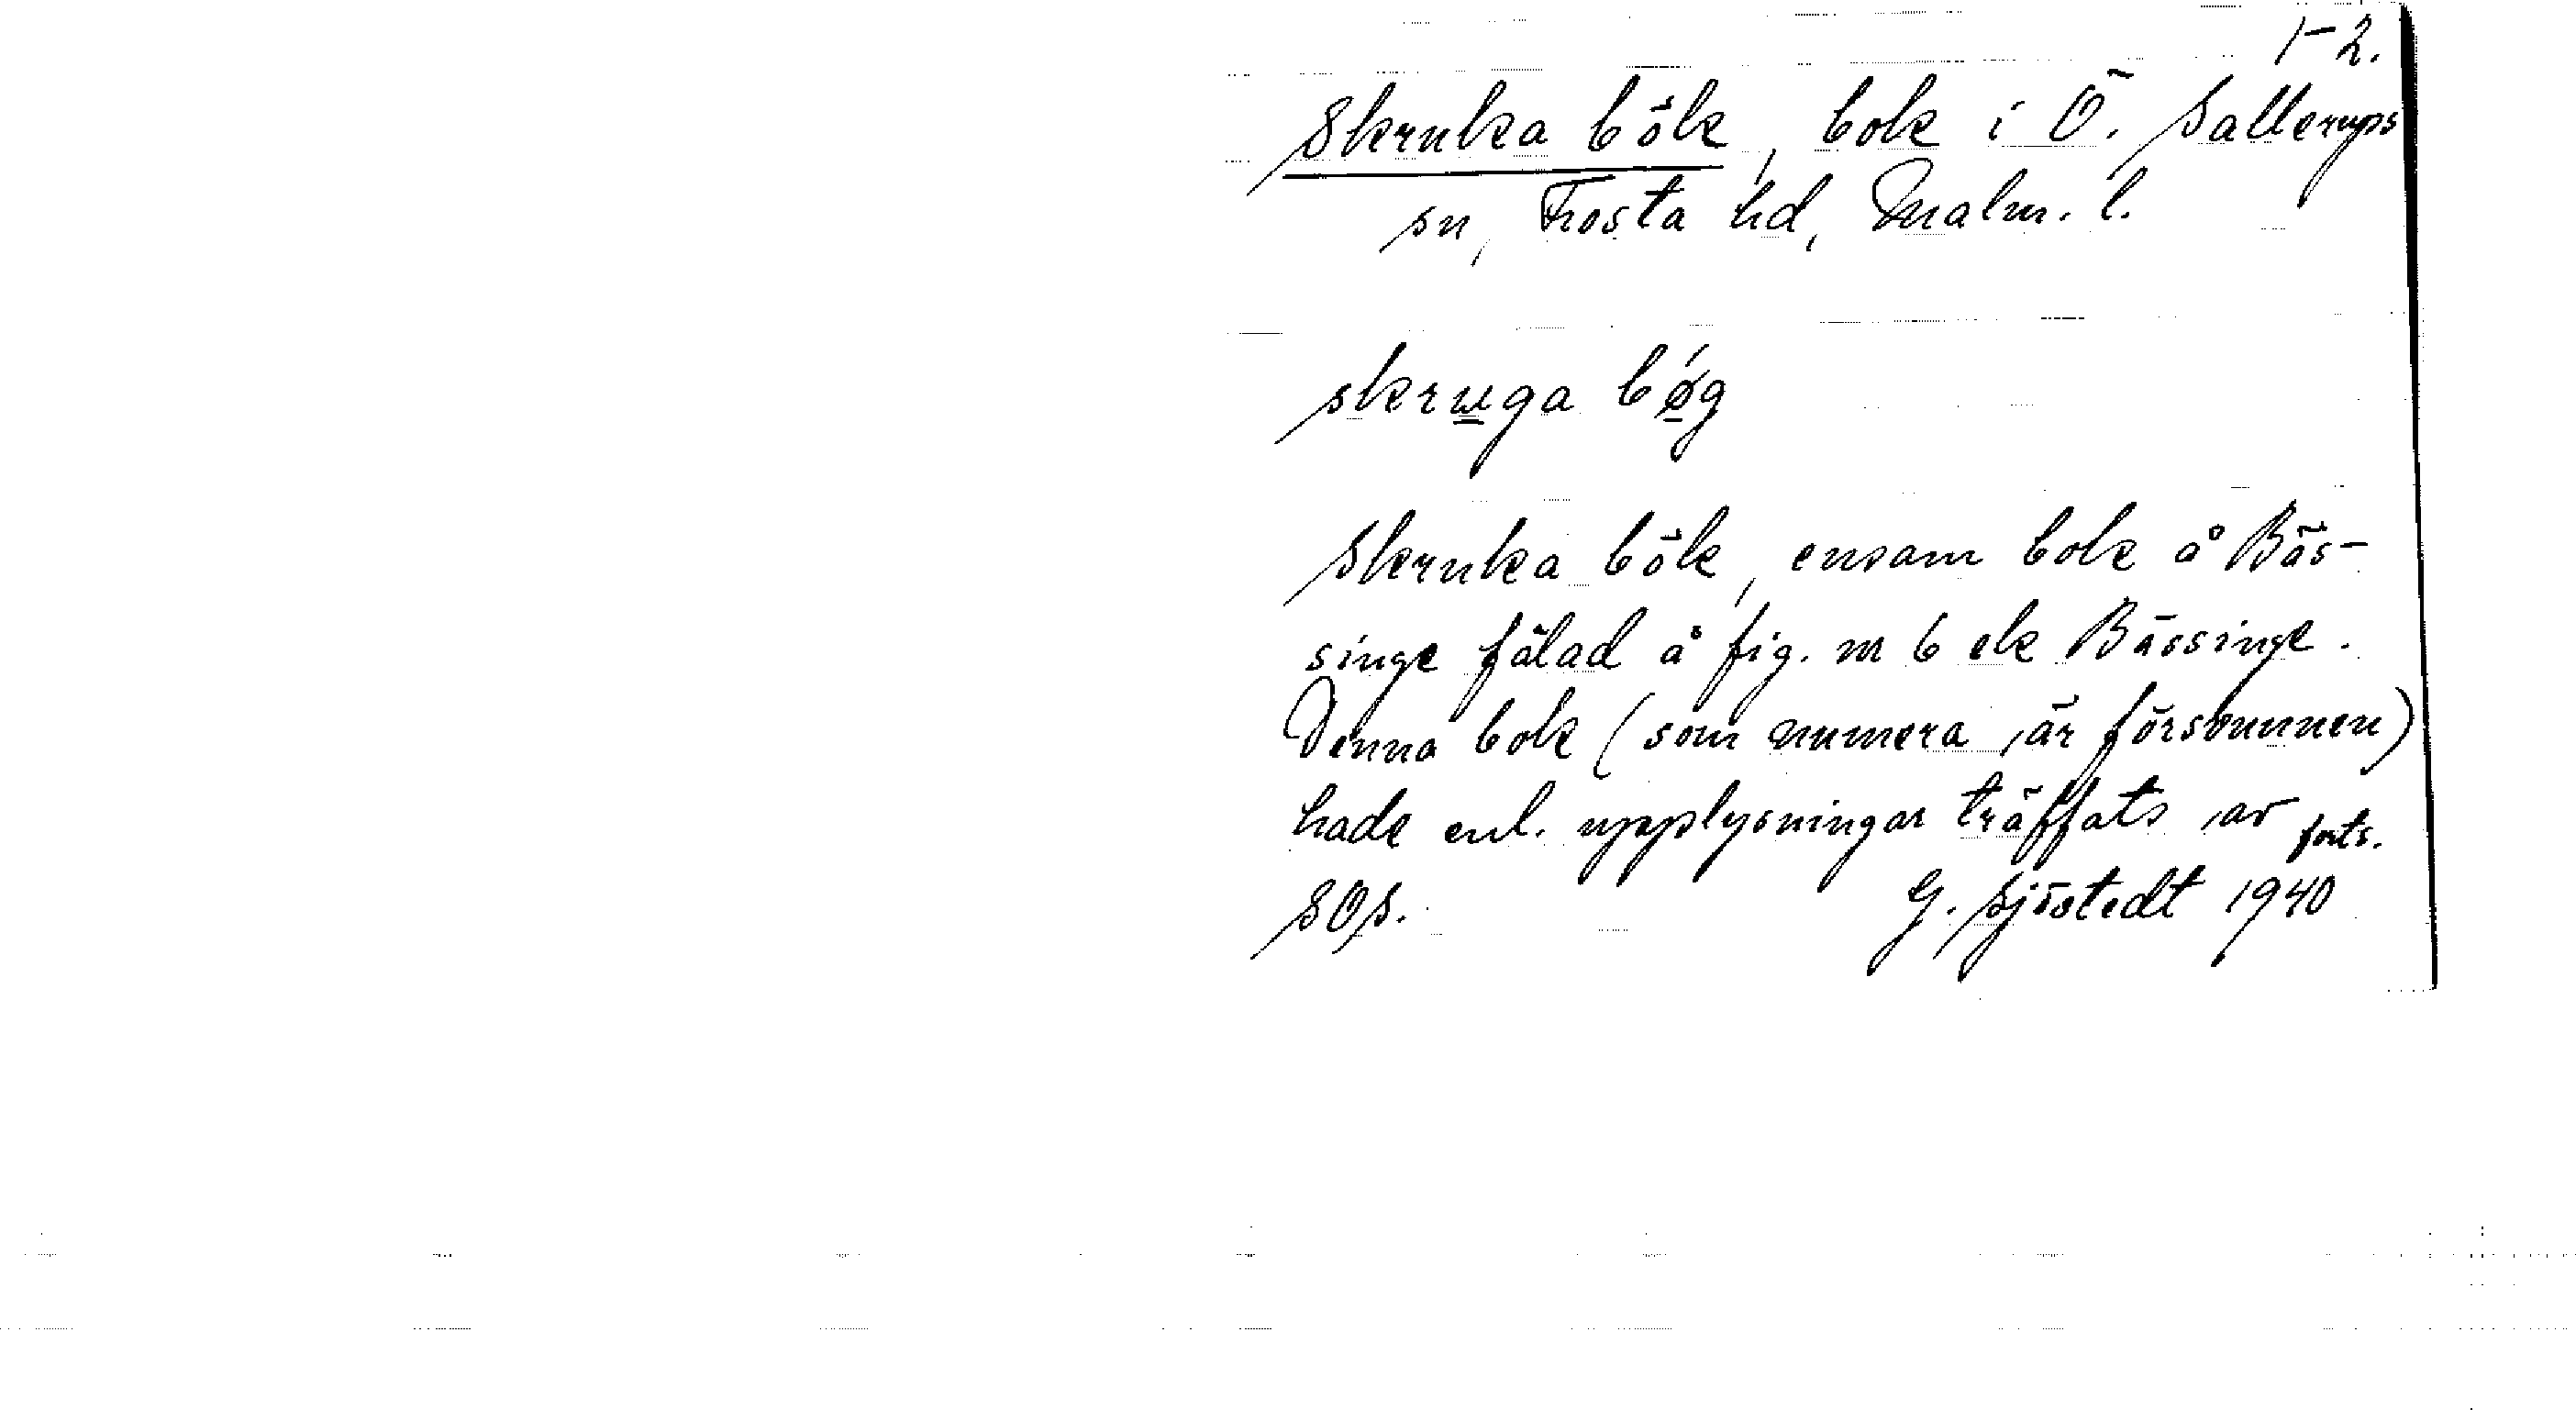 1-2.
Skruka bök, bok i Ö. Sallerups
sn, Frosta hd, Malm. l.
skruga bǿg
Skruka bök, ensam bok å Bäs-
singe fälad å fig. nr 6 ek Bässinge.
Denna bok (som numera är försvunnen)
hade enl. upplysningar träffats av forts.
SOS. G. Sjöstedt 1940